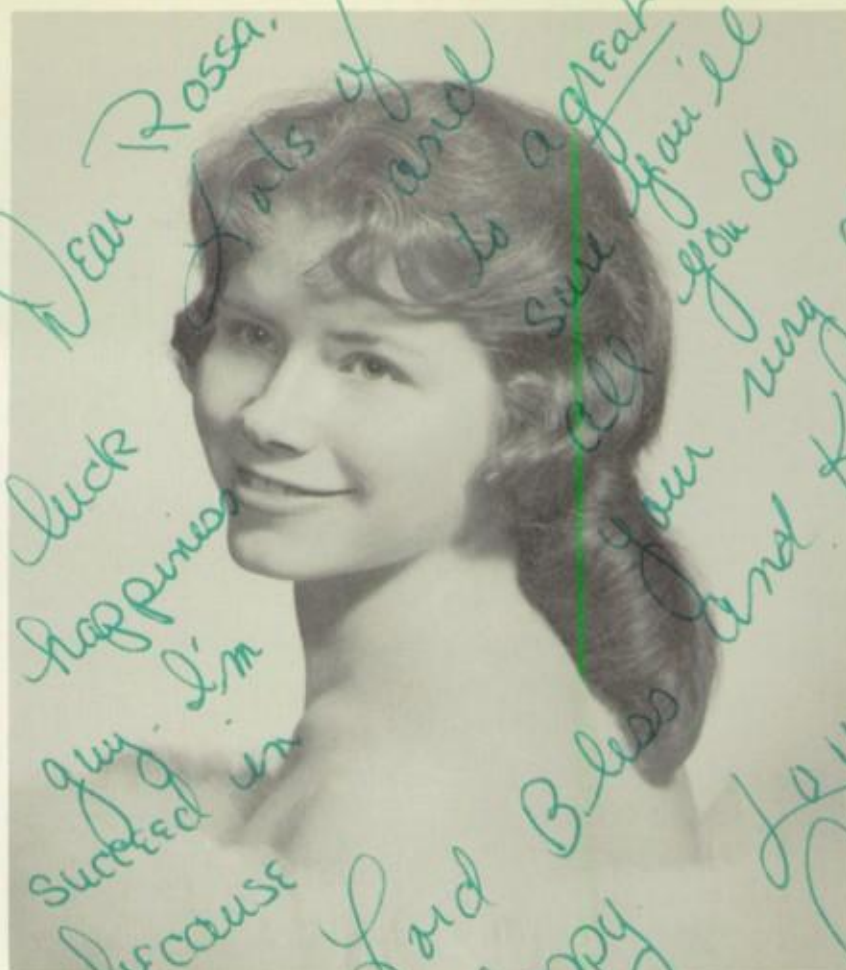 Dear Rossa,
Lots of
luck and
happiness to a great
guy. I'm sure you'll
succeed in all you do
because your very
Lord Bless and